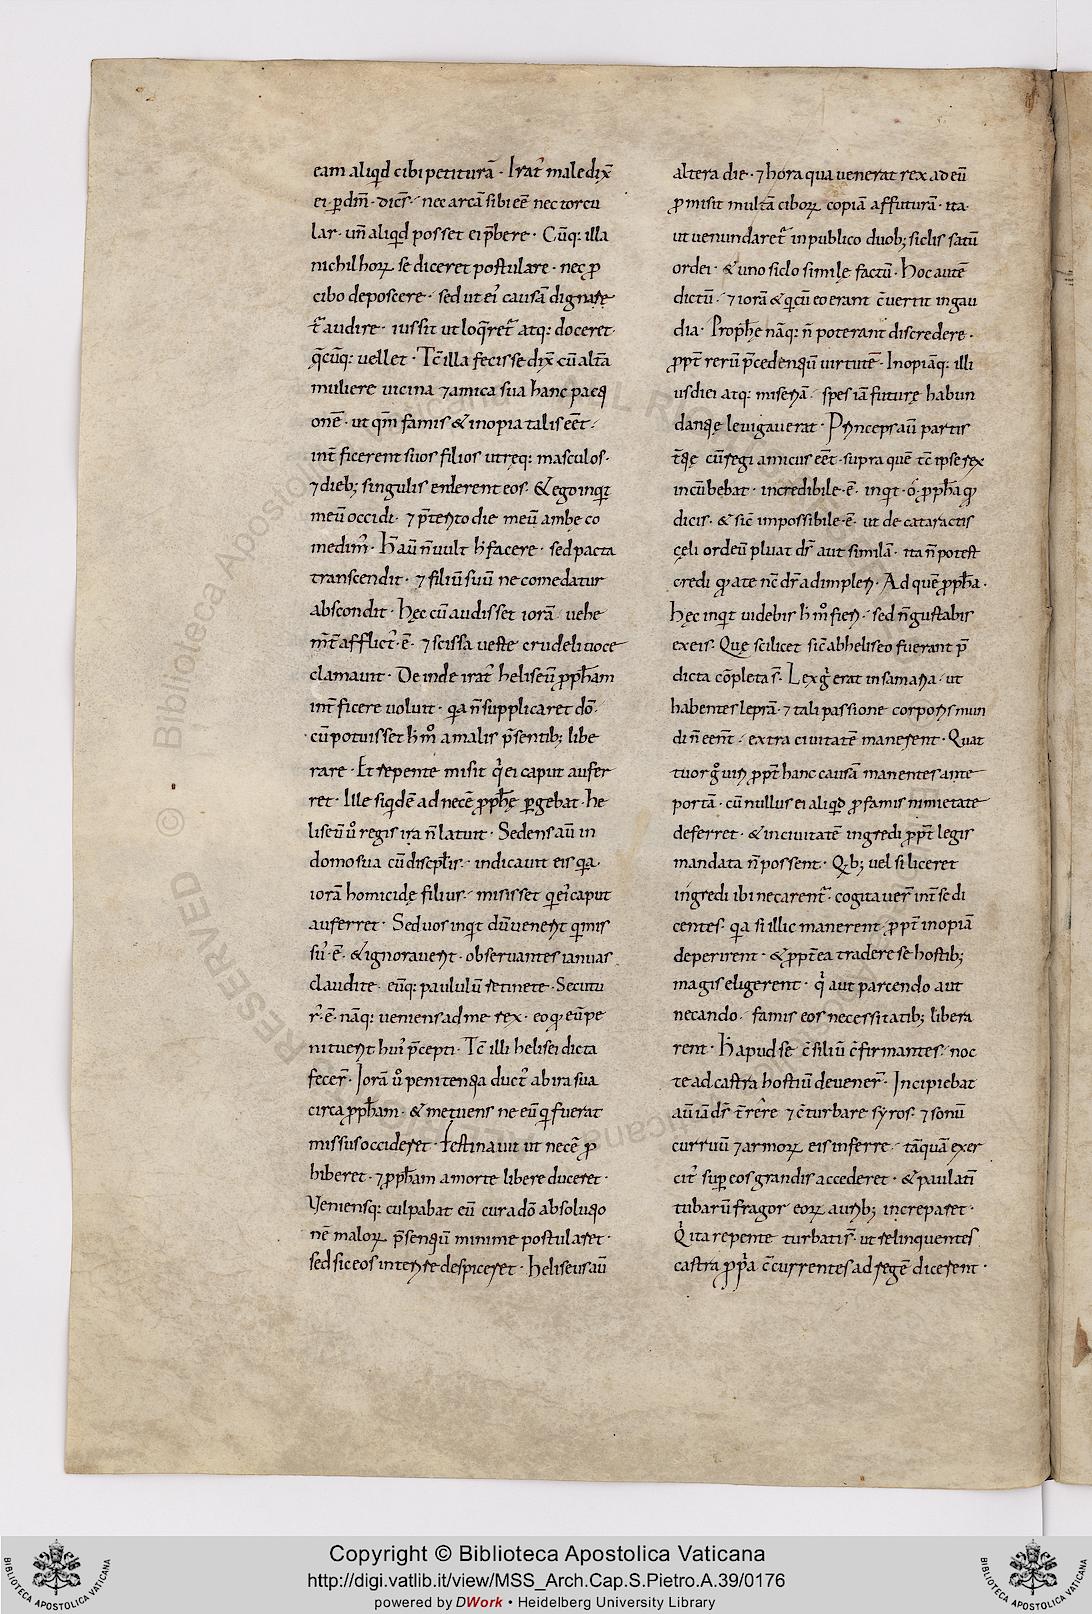 eam aliqͥd cibi petiturā · Iratꝰ maledix̄
ei · ꝑ dm̄ · dicēs · nec arcā sibi eē nec torcu
lar · un̄ aliqͥd posset ei p̄bere · Cūq: illa
nichil hoꝝ se diceret postulare · nec ꝓ
cibo deposcere · sed ut eiꝰ causā dignare
t̄ audire · iussit ut loq̄ret̄ atq: doceret ·
q̄cūq: uellet · Tc̄ illa fecisse dix̄ cū alt̄a
muliere uicina ⁊ amica sua hanc pacti
onē · ut qm̄ famis & inopia talis eēt ·
int̄ficerent suos filios utręq: masculos ·
⁊ dieb; singulis ederent eos · & ego inqͥt
meū occidi · ⁊ p̄terito die meū ambę co
medimꝰ · H̄ aū n̄ uult h̄ facere · sed pacta
transcendit · ⁊ filiū suū ne comedatur
abscondit · hęc cū audisset iorā · uehe
m̄t̄ afflictꝰ · ē · ⁊ scissa ueste crudeli uoce
clamauit · Deinde iratꝰ heliseū ꝓph̄am
int̄ficere uoluit · qͥa n̄ supplicaret dō ·
cū potuisset hͦmͦ a malis p̄sentib; libe
rare · Et repente misit qͥ ei caput aufer
ret · Ille siqͥdē ad necē ꝓph̄ę ꝑgebat · he
liseū uͦ regis ira n̄ latuit · Sedens aū in
domo sua cū discipl̄is · indicauit eis qͥa
iorā homicidę filius · misisset qͥ eiꝰ caput
auferret · Sed uos inqͥt dū uenerit qͥ mis
sꝰ · ē · & ignorauerit · obseruantes ianuas
claudite · eūq: paululū retinete · Secutu
rꝰ · ē · nāq: ueniens ad me rex · eo qͦ eū pe
nituerit huiꝰ p̄cepti · Tc̄ illi helisei dicta
fecer̄ · Iorā uͦ penitentia ductꝰ ab ira sua
circa ꝓph̄am · & metuens ne eū qͥ fuerat
missus occideret · festinauit ut necē ꝓ
hiberet · ⁊ ꝓph̄am a morte libere duceret ·
Veniensq: culpabat eū cur a dō absolutio
nē maloꝝ p̄sentiū minime postularet ·
sed sic eos interire despiceret · Heliseus aū
altera die · ⁊ hora qua uenerat rex ad eū
ꝓmisit multā ciboꝝ copiā affuturā · ita
ut uenundaret̄ in publico duob; siclis satū
ordei · & uno siclo similę factū · Hoc autē
dictū · ⁊ iorā & qͥ cū eo erant c̄uertit in gau
dia · Proph̄ę nāq: n̄ poterant discredere ·
ꝓpt̄ rerū p̄cedentiū uirtutē · Inopiāq: illi
us diei atq: miseriā · spes iā futurę habun
dantię leuigauerat · Princeps aū partis
t̄tię cū regi amicus eēt · supra quē tc̄ ipse rex
incūbebat · incredibile · ē · inqͥt · o · ꝓph̄a qͦ
dicis · & sic̄ impossibile · ē · ut de cataractis
cęli ordeū pluat dr̄ aut similā · ita n̄ potest
credi qͦ a te nc̄ dr̄ adimpleri · Ad quē ꝓph̄a ·
hęc inqͥt uidebis hͦmͦ fieri · sed n̄ gustabis
ex eis · Quę scilicet sic̄ ab heliseo fuerant p̄
dicta cōpleta s̄ · Lex gͦ erat in samaria · ut
habentes leprā · ⁊ tali passione corporis mun
di n̄ eent̄ · extra ciuitatē manerent · Quat
tuor gͦ uiri ꝓpt̄ hanc causā manentes ante
portā · cū nullus ei aliqͥd ꝓ famis nimietate
deferret · & in ciuitatē ingredi ꝓpt̄ legis
mandata n̄ possent · Qͥb; uel si liceret
ingredi ibi necarent̄ · cogitauer̄ int̄ se di
centes · qͥa si illic manerent ꝓpt̄ inopiā
deperirent · & ꝓpt̄ea tradere se hostib;
magis eligerent · qͥ aut parcendo aut
necando · famis eos necessitatib; libera
rent · H̄ apud se c̄siliū c̄firmantes · noc
te ad castra hostiū deuener̄ · Incipiebat
aū iā dr̄ t̄rēre ⁊ c̄turbare syros · ⁊ sonū
curruū ⁊ armoꝝ eis inferre · tāquā exer
citꝰ suꝑ eos grandis accederet · & paulati
tubarū fragor eoꝝ aurib; increparet ·
Qͥ ita repente turbati s̄ · ut relinquentes
castra ꝓpͥa c̄currentes ad regē dicerent ·
Copyright © Biblioteca Apostolica Vaticana
http://digi.vatlib.it/view/MSS_Arch.Cap.S.Pietro.A.39/0176
powered by DWork • Heidelberg University Library